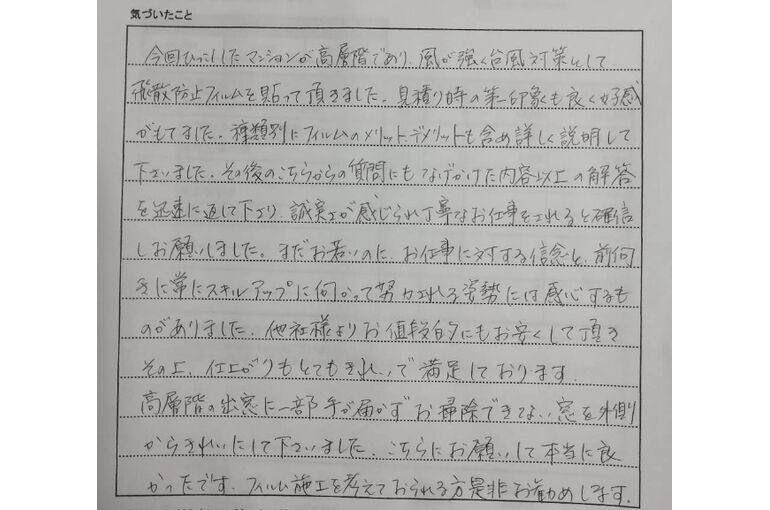 気づいたこと
今回ひっこししたマンションが高層階であり、風が強く台風対策として
飛散防止フィルムを貼って頂きました。見積り時の第一印象も良く好感
がもてました。種類別にフィルムのメリット、デメリットも含め詳しく説明して
下さいました。その後のこちらからの質問にもなげかけた内容以上の解答
を迅速に返して下さり、誠実さが感じられ丁寧なお仕事をされると確信
しお願いしました。まだお若いのに、お仕事に対する信念と、前向
きに常にスキルアップに向かって努力される姿勢には感心するも
のがありました。他社様よりお値段的にもお安くして頂き
その上、仕上がりもとてもきれいで満足しております。
高層階の出窓に一部手が届かずお掃除できない窓を外側
からきれいにして下さいました。こちらにお願いして本当に良
かったです。フィルム施工を考えておられる方是非お勧めします。